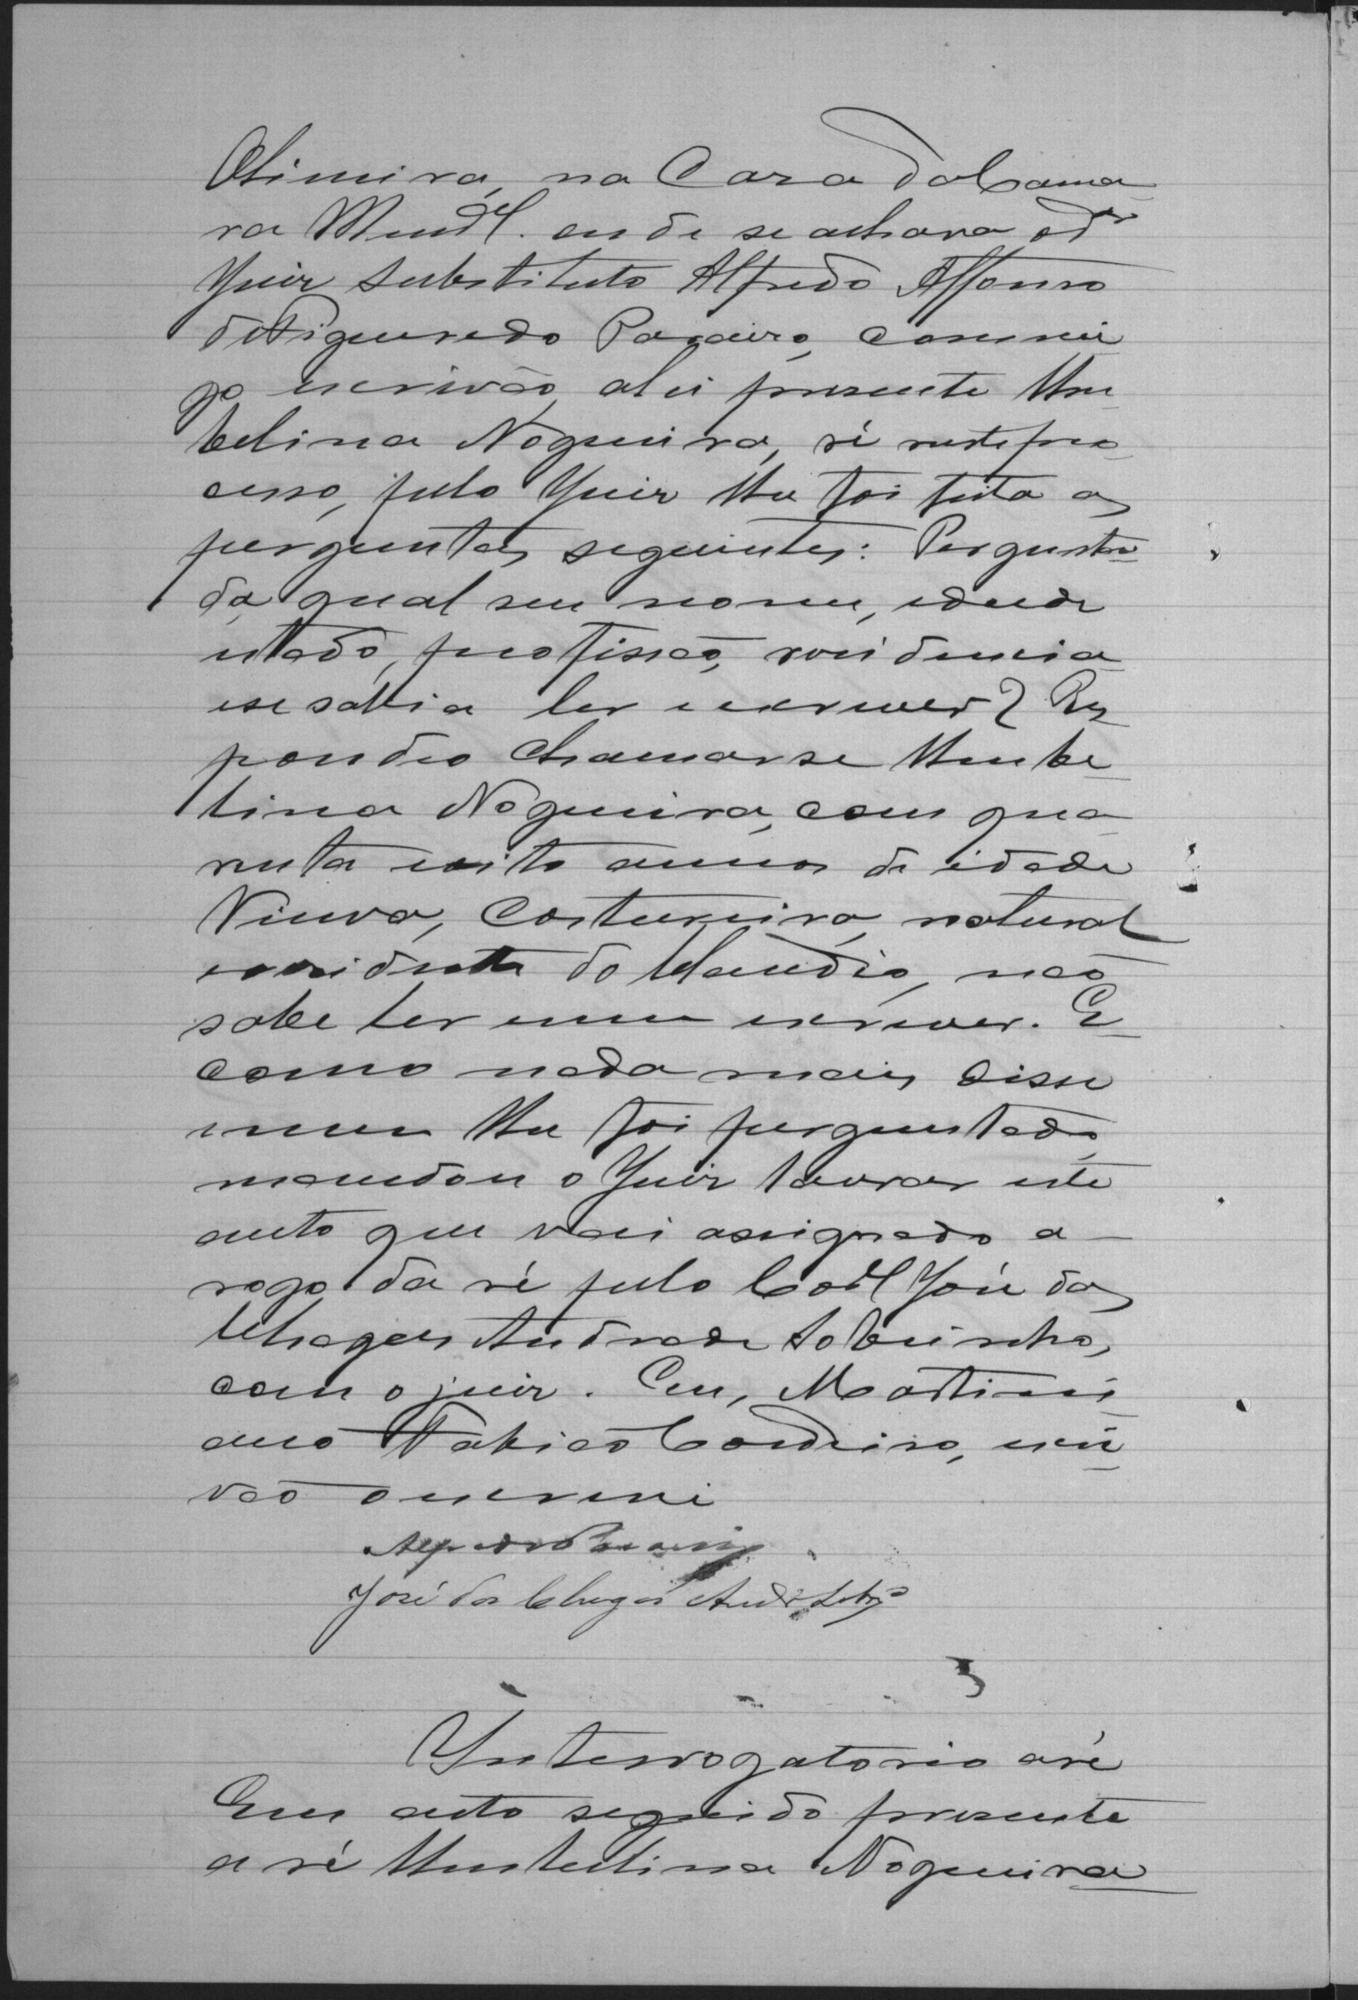 Oliveira, na Caza da Cama
ra Munal. onde se achava o dr
Juiz substituto Alfredo Affonso
de Figueredo Paraizo, commi
go escrivão, ahi presente Um
belina Nogueira, ré neste pro
cesso, pelo Juiz lhe foi feita as
perguntas seguintes: Pergunta
da qual seu nome, edade
estado, profissão, rezidencia
e se sabia ler e escrever? Res
pondeo chamar se Umbe
lina Nogueira, com qua
renta e oito annos de idade
Viuva, Costureira, natural
e rezidente do Claudio, não
sabe ler e nem escrever. E
como nada mais disse
e nem lhe foi perguntado
mandou o Juiz lavrar este
auto que vai assignado a
rogo da ré pelo Coel José das
Chagas Andrade Sobrinho,
com o juiz. Eu, Martini
ano Cordeiro, escri
vão o escrevi
Alfredo Paraizo
José das Chagas Andre Sobro
Interrogatorio a ré
Em auto seguido presente
a ré Umbelina Nogueira